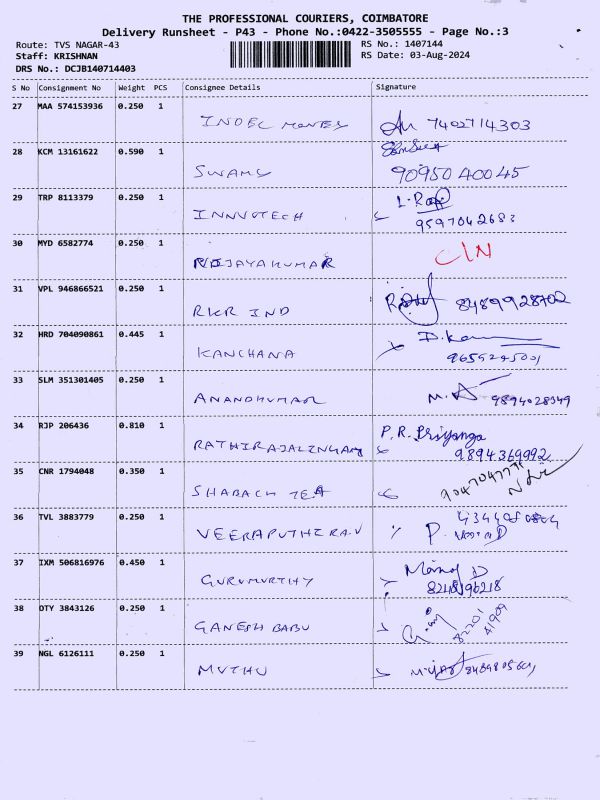 THE PROFESSIONAL COURIERS, COIMBATORE
Delivery Runsheet - P43 - Phone No.:0422-3505555 - Page No.:3
Route: TVS NAGAR-43 RS No.: 1407144
Staff: KRISHNAN RS Date: 03-Aug-2024
DRS No.: DCJB140714403
S No Consignment No Weight PCS Consignee Details Signature
27 MAA 574153936 0.250 1 INDEL MONEY 7402714303
28 KCM 13161622 0.590 1 SWAMY 9095040045
29 TRP 8113379 0.250 1 INNVOTECH 9597042683
30 MYD 6582774 0.250 1 VIJAYAKUMAR
31 VPL 946866521 0.250 1 RKR IND 8489928702
32 HRD 704090861 0.445 1 KANCHANA D.
33 SLM 351301405 0.250 1 ANANDHUMAR 9894028349
34 RJP 206436 0.810 1 RATHIRAJALINGAM P.R. Priyanga
9894369992
35 CNR 1794048 0.350 1 SHABACH TEA
36 TVL 3883779 0.250 1 P.
37 IXM 506816976 0.450 1 GURUMURTHY Manoj D
8248196218
38 DTY 3843126 0.250 1 GANESH BABU 82201
41909
39 NGL 6126111 0.250 1 MUTHU